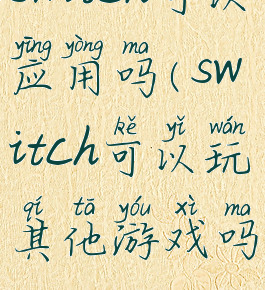 yīng yòng ma
应用吗(sw
kě yǐ wán
itch可以玩
qí tā yóu xì ma
其他游戏吗